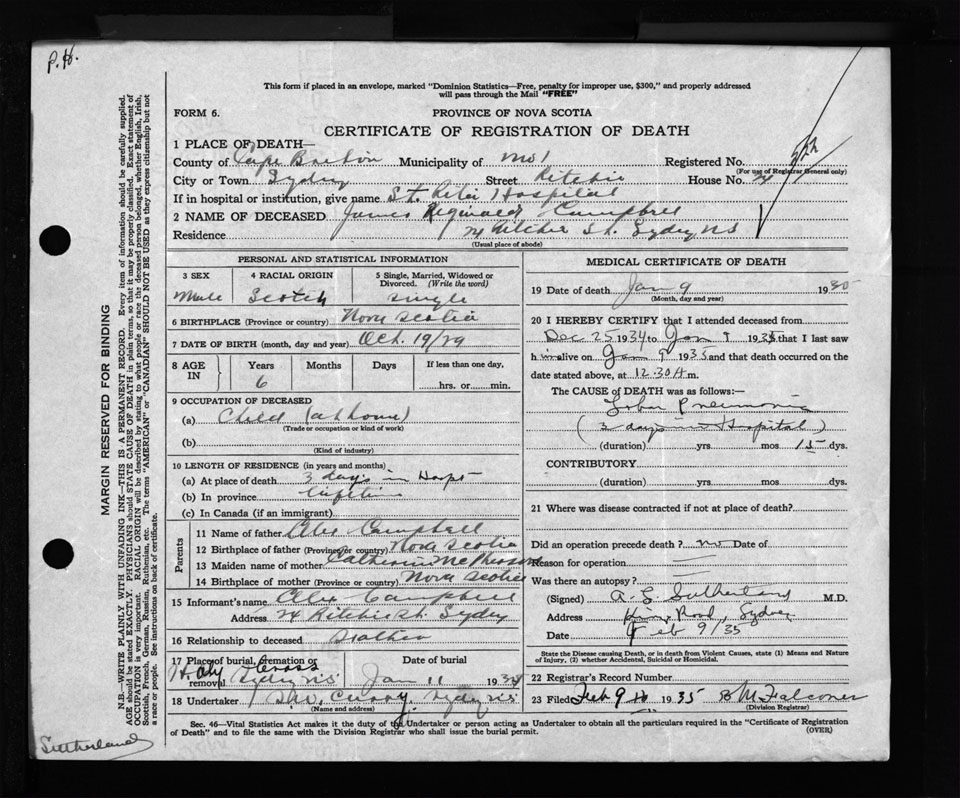 P.H.
This form if placed in an envelope, marked "Dominion Statistics—Free, penalty for improper use, $300," and properly addressed
will pass through the Mail "FREE"
FORM 6.
PROVINCE OF NOVA SCOTIA
CERTIFICATE OF REGISTRATION OF DEATH
1 PLACE OF DEATH—
County of Cape Breton Municipality of No 1 Registered No.
(For use of Registrar General only)
City or Town Sydney Street Ritchie House No. 74
If in hospital or institution, give name St. Rita Hospital
2 NAME OF DECEASED James Reginald Campbell
Residence 74 Ritchie St. Sydney NS
(Usual place of abode)
PERSONAL AND STATISTICAL INFORMATION
3 SEX 4 RACIAL ORIGIN 5 Single, Married, Widowed or
Divorced. (Write the word)
Male Scotch Single
6 BIRTHPLACE (Province or country) Nova Scotia
7 DATE OF BIRTH (month, day and year) Oct. 19/29
8 AGE IN Years Months Days If less than one day,
6 hrs. or min.
9 OCCUPATION OF DECEASED
(a) Child (at home)
(Trade or occupation or kind of work)
(b)
(Kind of industry)
10 LENGTH OF RESIDENCE (in years and months)
(a) At place of death 3 days in Hospt
(b) In province Lifetime
(c) In Canada (if an immigrant)
Parents
11 Name of father Alex Campbell
12 Birthplace of father (Province or country) Nova Scotia
13 Maiden name of mother Catherine McPherson
14 Birthplace of mother (Province or country) Nova Scotia
15 Informant's name Alex Campbell
Address 74 Ritchie St. Sydney
16 Relationship to deceased Father
17 Place of burial, cremation or removal Date of burial
Holy Cross Sydney NS Jan 11 1934
18 Undertaker Curry Sydney NS
(Name and address)
MEDICAL CERTIFICATE OF DEATH
19 Date of death Jan 9 1935
(Month, day and year)
20 I HEREBY CERTIFY that I attended deceased from
Dec 25 1934 to Jan 9 1935 that I last saw
him alive on Jan 9 1935 and that death occurred on the
date stated above, at 12.30 A m.
The CAUSE OF DEATH was as follows:—
Lobar Pneumonia
(3 days in Hospital)
(duration) yrs. mos 15 dys.
CONTRIBUTORY
(duration) yrs. mos dys.
21 Where was disease contracted if not at place of death?
Did an operation precede death? no Date of
Reason for operation
Was there an autopsy?
(Signed) A. G. Sutherland M.D.
Address Kings Road, Sydney
Date Feb 9/35
State the Disease causing Death, or in death from Violent Causes, state (1) Means and
Nature of Injury, (2) whether Accidental, Suicidal or Homicidal.
22 Registrar's Record Number
23 Filed Feb 9 1935 B M Falconer
(Division Registrar)
Sec. 46—Vital Statistics Act makes it the duty of the Undertaker or person acting as Undertaker to obtain all the particulars required in the "Certificate of Registration
of Death" and to file the same with the Division Registrar who shall issue the burial permit.
(OVER)
MARGIN RESERVED FOR BINDING
N.B.—WRITE PLAINLY WITH UNFADING INK—THIS IS A PERMANENT RECORD. Every item of information should be carefully supplied.
AGE should be stated EXACTLY. PHYSICIANS should STATE CAUSE OF DEATH in plain terms, so that it may be properly classified. Exact statement of
OCCUPATION is very important. RACIAL ORIGIN will be described by stating to what people or race the deceased person belonged, whether English, Irish,
Scottish, French, German, Russian, Ruthenian, etc. The terms "AMERICAN" or "CANADIAN" SHOULD NOT BE USED as they express citizenship but not
a race or people. See instructions on back of certificate.
Sutherland